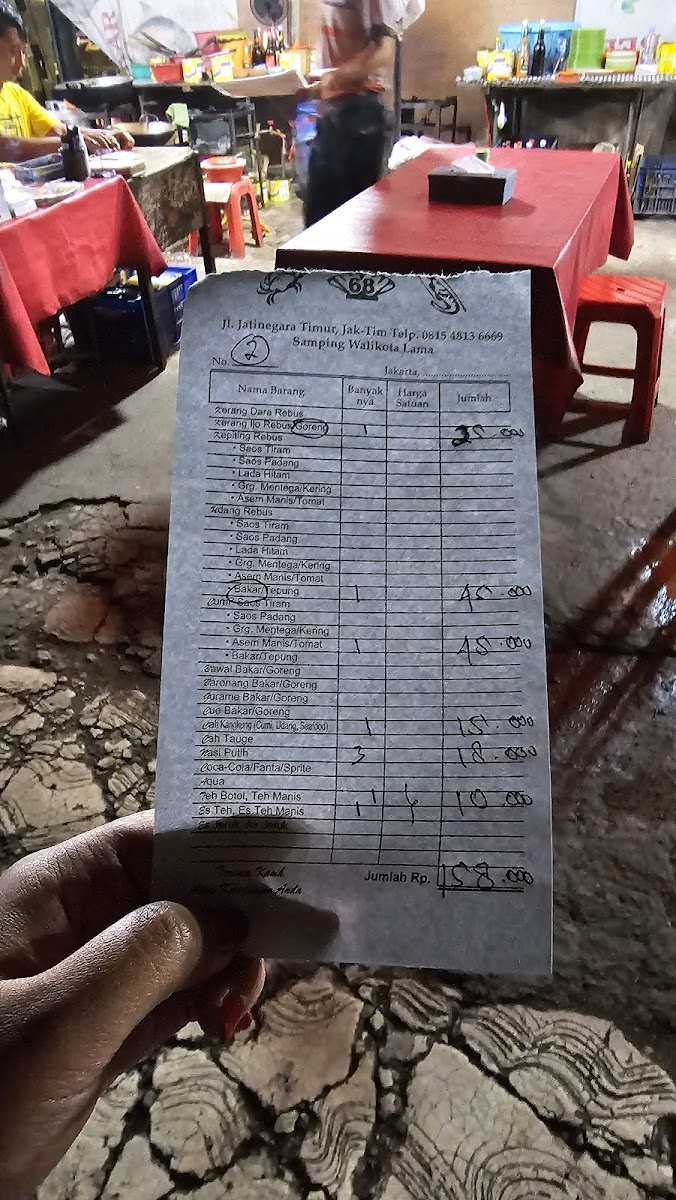 68
Jl. Jatinegara Timur, Jak-Tim Telp. 0815 4813 6669
Samping Walikota Lama
No. 2
Jakarta, ........................
Nama Barang Banyak nya Harga Satuan Jumlah
Kerang Dara Rebus
Kerang Ijo Rebus/Goreng 1 25.000
Kepiting Rebus
• Saos Tiram
• Saos Padang
• Lada Hitam
• Grg. Mentega/Kering
• Asem Manis/Tomat
Udang Rebus
• Saos Tiram
• Saos Padang
• Lada Hitam
• Grg. Mentega/Kering
• Asem Manis/Tomat
• Bakar/Tepung 1 45.000
Cumi Saos Tiram
• Saos Padang
• Grg. Mentega/Kering
• Asem Manis/Tomat 1 45.000
• Bakar/Tepung
Bawal Bakar/Goreng
Baronang Bakar/Goreng
Gurame Bakar/Goreng
Cue Bakar/Goreng
Cah Kangkung (Cumi, Udang, Seafood) 1 15.000
Cah Tauge
Nasi Putih 3 18.000
Coca-Cola/Fanta/Sprite
Aqua
Teh Botol, Teh Manis 1 10.000
Es Teh, Es Teh Manis 1
Es Jeruk, Air Jeruk
Jumlah Rp. 158.000
Terima Kasih
Atas Kunjungan Anda